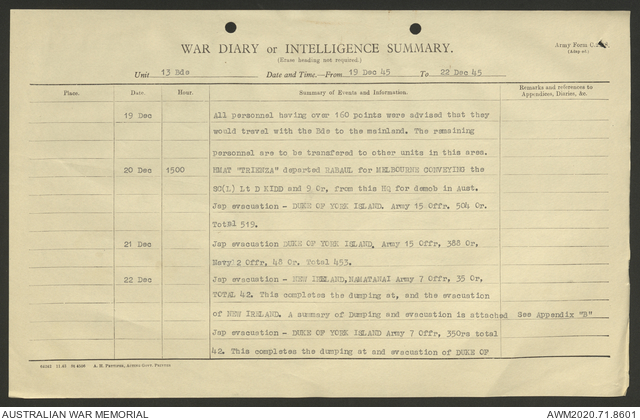 WAR DIARY or INTELLIGENCE SUMMARY.
(Erase heading not required.)
Army Form
Unit 13 Bde Date and Time.—From 19 Dec 45 To 22 Dec 45
Place. Date. Hour. Summary of Events and Information. Remarks and references to Appendices, Diaries, &c.
19 Dec All personnel having over 160 points were advised that they
would travel with the Bde to the mainland. The remaining
personnel are to be transfered to other units in this area.
20 Dec 1500 HMAT "TRIENZA" departed RABAUL for MELBOURNE CONVEYING the
SC(L) Lt D KIDD and 9 Or, from this HQ for demob in Aust.
Jap evacuation - DUKE OF YORK ISLAND. Army 15 Offr. 504 Or.
Total 519.
21 Dec Jap evacuation DUKE OF YORK ISLAND. Army 15 Offr, 388 Or,
Navy 2 Offr, 48 Or. Total 453.
22 Dec Jap evacuation - NEW IRELAND, NAMATANAI Army 7 Offr, 35 Or,
TOTAL 42. This completes the dumping at, and the evacuation
of NEW IRELAND. A summary of Dumping and evacuation is attached See Appendix "B"
Jap evacuation - DUKE OF YORK ISLAND Army 7 Offr, 35Ors total
42. This completes the dumping at and evacuation of DUKE OF
A. H. Pettifer, Acting Govt. Printer
AUSTRALIAN WAR MEMORIAL
AWM2020.71.8601